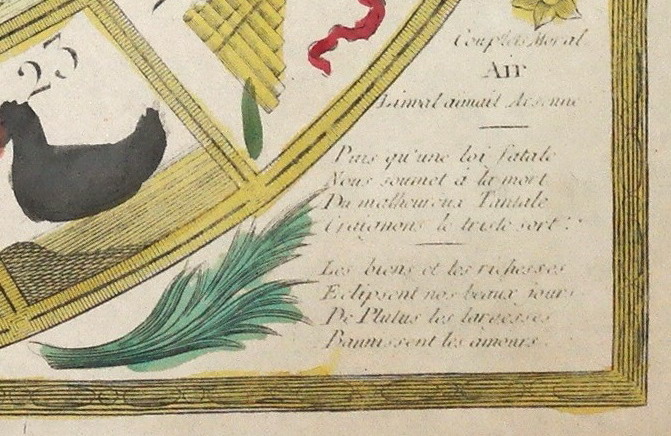 23
Couplets Moral
Air
Limval aimait Arsenne
Puis qu'une loi fatale
Nous soumet à la mort
Du malheureux Tantale
Craignons le triste sort !
Les biens et les richesses
Eclipsent nos beaux jours
De Plutus les largesses
Bannissent les amours.